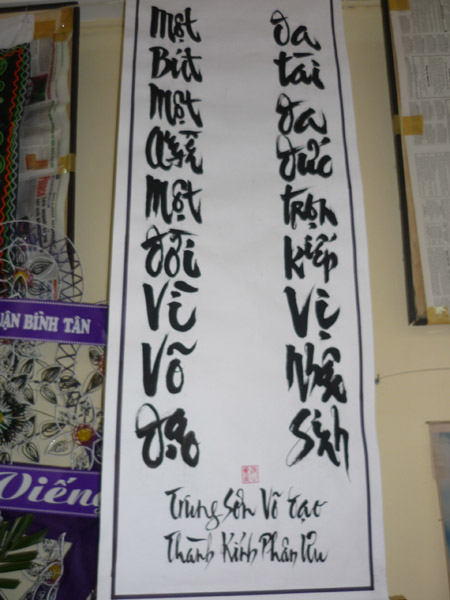 Một Bút Một Quyền Một Đời Vì Võ Đạo
Đa tài Đa Đức trọn kiếp Vị Nhân Sinh
Trung Sơn Võ Tạo
Thành Kính Phân Ưu
UẬN BÌNH TÂN
Viếng